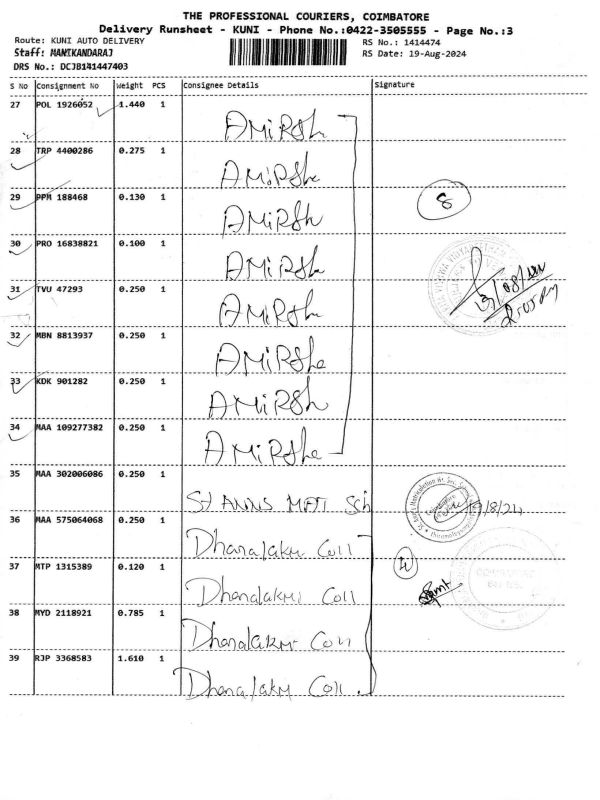 THE PROFESSIONAL COURIERS, COIMBATORE
Delivery Runsheet - KUNI - Phone No.:0422-3505555 - Page No.:3
Route: KUNI AUTO DELIVERY
RS No.: 1414474
Staff: MANIKANDARAJ
RS Date: 19-Aug-2024
DRS No.: DCJB141447403
S No Consignment No Weight PCS Consignee Details Signature
27 POL 1926052 1.440 1
AMiRSh
28 TRP 4400286 0.275 1
AMiRShe
29 PPM 188468 0.130 1
AMiRSh
8
30 PRO 16838821 0.100 1
AMiRSh
31 TVU 47293 0.250 1
AMiRSh
32 MBN 8813937 0.250 1
AMiRShe
33 KDK 901282 0.250 1
AMiRSh
34 MAA 109277382 0.250 1
AMiRShe
35 MAA 302006086 0.250 1
St ANNS MAT Sch
19/8/24
36 MAA 575064068 0.250 1
Dhanalakmi Coll
37 MTP 1315389 0.120 1
4
Dhanalakmi Coll
38 MYD 2118921 0.785 1
Dhanalakmi Coll
39 RJP 3368583 1.610 1
Dhanalakmi Coll